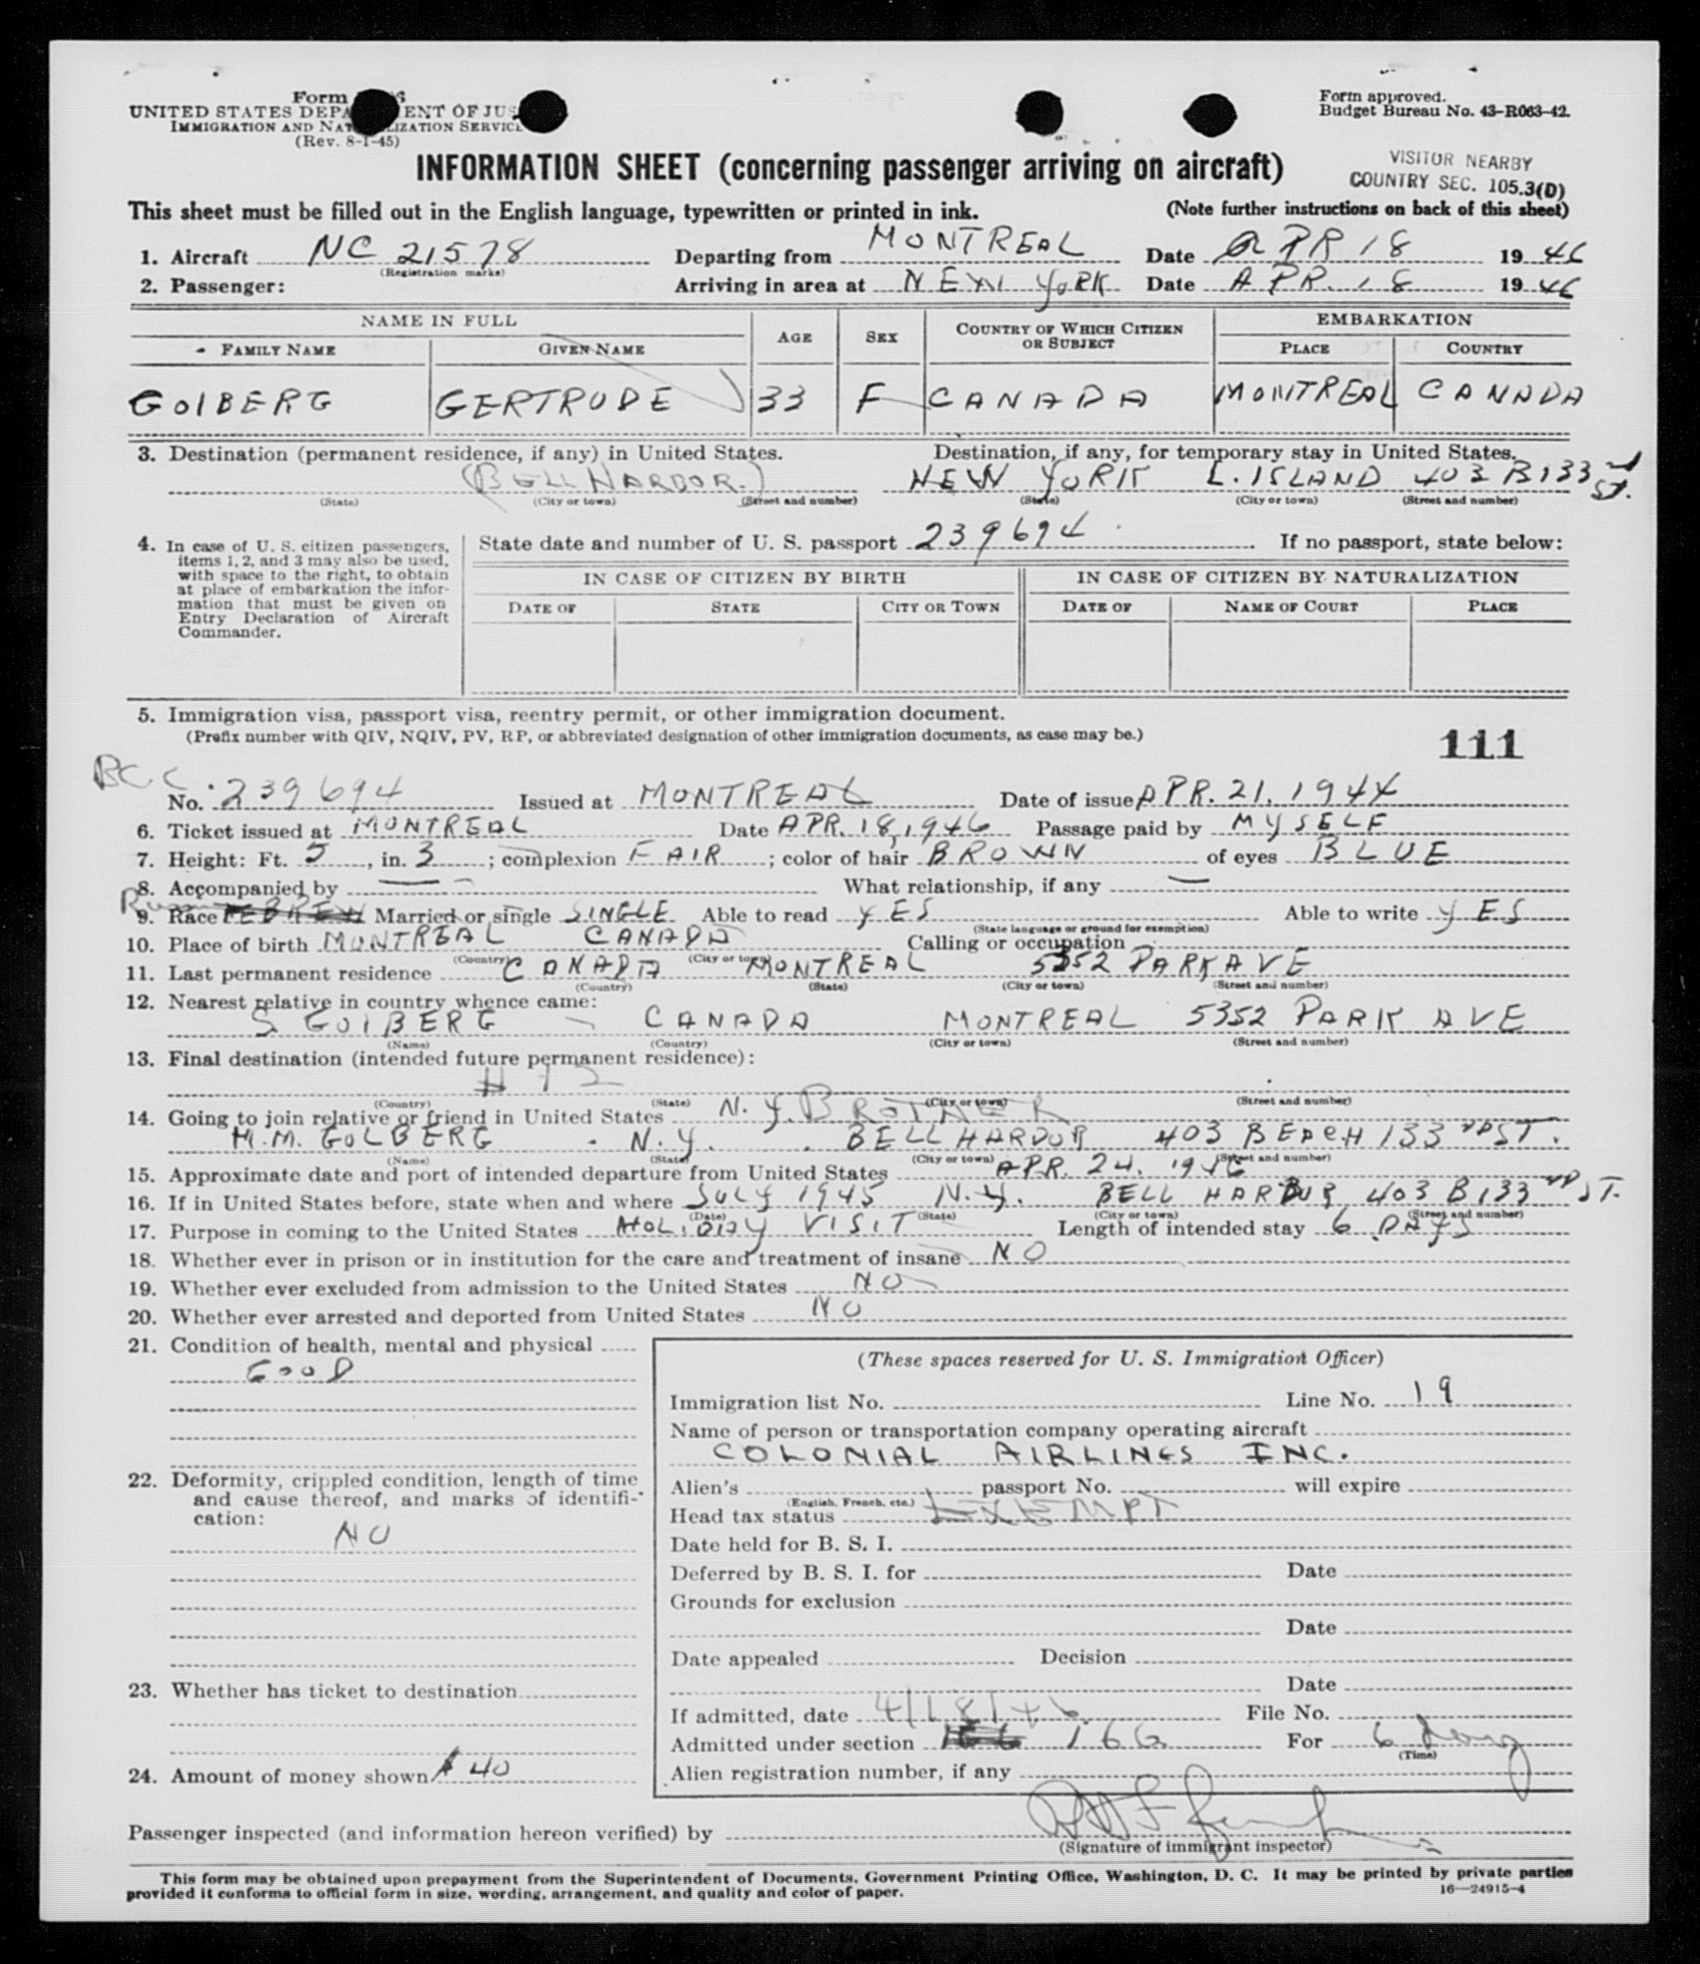 Form
UNITED STATES DEPA ENT OF JUS
IMMIGRATION AND NAT IZATION SERVICE
(Rev. 8-1-45)
Form approved.
Budget Bureau No. 43-R063-42.
INFORMATION SHEET (concerning passenger arriving on aircraft)
VISITOR NEARBY
COUNTRY SEC. 105.3(D)
This sheet must be filled out in the English language, typewritten or printed in ink. (Note further instructions on back of this sheet)
1. Aircraft NC 21578 Departing from MONTREAL Date APR 18 19 46
(Registration marks)
2. Passenger: Arriving in area at NEW YORK Date APR. 18 19 46
NAME IN FULL AGE SEX COUNTRY OF WHICH CITIZEN OR SUBJECT EMBARKATION
FAMILY NAME GIVEN NAME PLACE COUNTRY
GOLBERG GERTRUDE 33 F CANADA MONTREAL CANADA
3. Destination (permanent residence, if any) in United States. Destination, if any, for temporary stay in United States.
(BELL HARBOR.) NEW YORK L. ISLAND 403 B 133 ST.
(State) (City or town) (Street and number) (State) (City or town) (Street and number)
4. In case of U. S. citizen passengers, items 1, 2, and 3 may also be used, with space to the right, to obtain at place of embarkation the information that must be given on Entry Declaration of Aircraft Commander.
State date and number of U. S. passport 239694 If no passport, state below:
IN CASE OF CITIZEN BY BIRTH IN CASE OF CITIZEN BY NATURALIZATION
DATE OF STATE CITY OR TOWN DATE OF NAME OF COURT PLACE
5. Immigration visa, passport visa, reentry permit, or other immigration document.
(Prefix number with QIV, NQIV, PV, RP, or abbreviated designation of other immigration documents, as case may be.)
111
BCC
No. 239694 Issued at MONTREAL Date of issue APR. 21, 1944
6. Ticket issued at MONTREAL Date APR. 18, 1946 Passage paid by MYSELF
7. Height: Ft. 5, in. 3; complexion FAIR; color of hair BROWN of eyes BLUE
8. Accompanied by — What relationship, if any —
9. Race HEBREW Married or single SINGLE Able to read YES Able to write YES
(State language or ground for exemption)
10. Place of birth MONTREAL CANADA Calling or occupation
(Country) (City or town)
11. Last permanent residence CANADA MONTREAL 5352 PARK AVE
(Country) (State) (City or town) (Street and number)
12. Nearest relative in country whence came:
S. GOLBERG CANADA MONTREAL 5352 PARK AVE
(Name) (Country) (City or town) (Street and number)
13. Final destination (intended future permanent residence):
(Country) (State) (City or town) (Street and number)
14. Going to join relative or friend in United States N.Y. BROTHER
M.M. GOLBERG N.Y. BELL HARBOUR 403 BEACH 133 ST.
(Name) (State) (City or town) (Street and number)
15. Approximate date and port of intended departure from United States APR. 24. 1946
16. If in United States before, state when and where JULY 1945 N.Y. BELL HARBUR 403 B 133 ST.
(Date) (State) (City or town) (Street and number)
17. Purpose in coming to the United States HOLIDAY VISIT Length of intended stay 6 DAYS
18. Whether ever in prison or in institution for the care and treatment of insane NO
19. Whether ever excluded from admission to the United States NO
20. Whether ever arrested and deported from United States NO
21. Condition of health, mental and physical
GOOD
22. Deformity, crippled condition, length of time and cause thereof, and marks of identification:
NO
23. Whether has ticket to destination
24. Amount of money shown $ 40
(These spaces reserved for U. S. Immigration Officer)
Immigration list No. Line No. 19
Name of person or transportation company operating aircraft
COLONIAL AIRLINES INC.
Alien's passport No. will expire
(English, French, etc.)
Head tax status EXEMPT
Date held for B. S. I.
Deferred by B. S. I. for Date
Grounds for exclusion
Date
Date appealed Decision
Date
If admitted, date 4/18/46 File No.
Admitted under section 166 For 6 days
(Time)
Alien registration number, if any
Passenger inspected (and information hereon verified) by
(Signature of immigrant inspector)
This form may be obtained upon prepayment from the Superintendent of Documents, Government Printing Office, Washington, D. C. It may be printed by private parties
provided it conforms to official form in size, wording, arrangement, and quality and color of paper.
16—24915-4